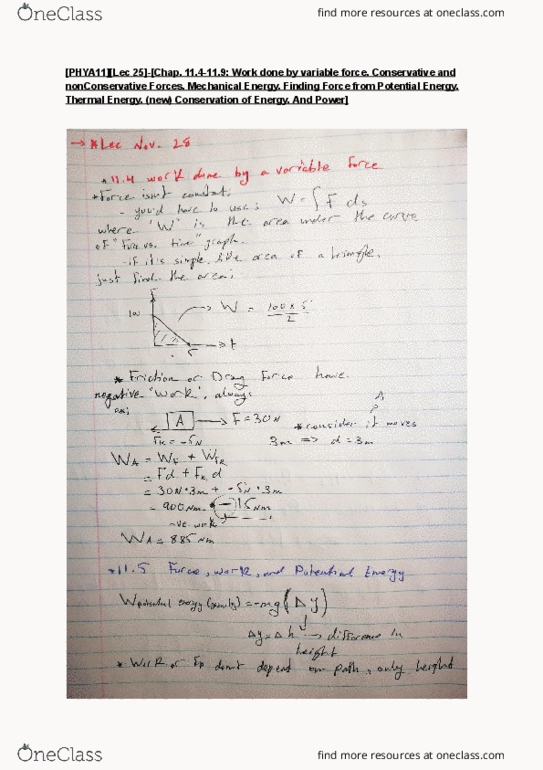 OneClass
find more resources at oneclass.com
[PHYA11][Lec 25]-[Chap. 11.4-11.9: Work done by variable force, Conservative and
nonConservative Forces, Mechanical Energy, Finding Force from Potential Energy,
Thermal Energy, (new) Conservation of Energy, And Power]
→ *Lec Nov. 28
*11.4 work done by a variable force
*Force isn't constant;
- you'd have to use; W = ∫F ds
where "W" is the area under the curve
of "Force vs. time" graph.
- if it's simple, like area of a triangle,
just find the area;
100
→ W = 100 x 5 / 2
5 → t
* Friction or Drag Force have
negative "work", always
A → F = 30N
*consider it moves
FK = -5N
3m => d = 3m
WA = WF + WFK
= Fd + FK d
= 30N • 3m + -5N • 3m
= 900Nm - 15Nm
-ve work
WA = 885 Nm
*11.5 Force, work, and Potential Energy
Wpotential energy (gravity) = -mg(Δy)
Δy = Δh → difference in
height
* Work or Ep don't depend on path, only height
OneClass
find more resources at oneclass.com